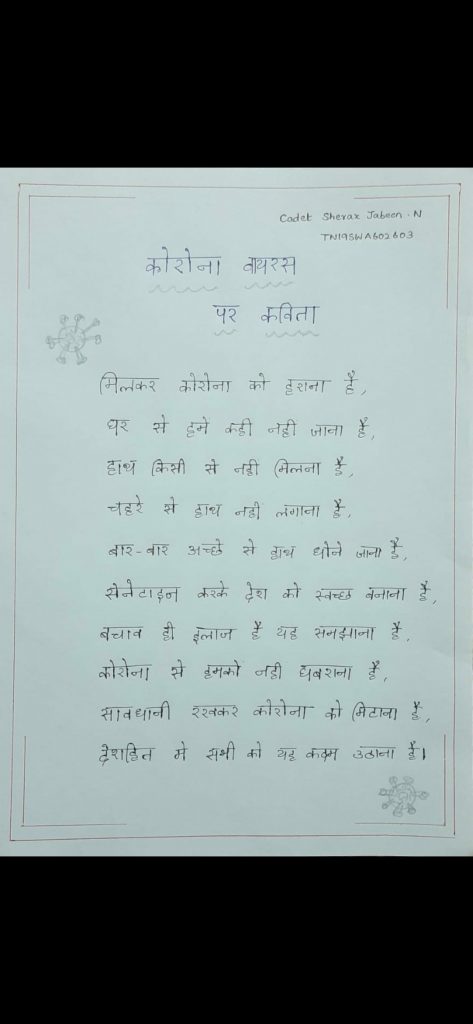 Cadet Sherax Jabeen. N
TN19SWA602603
कोरोना वायरस
पर कविता
मिलकर कोरोना को हराना है,
घर से हमे कही नही जाना है,
हाथ किसी से नही मिलना है,
चहरे से हाथ नही लगाना है,
बार-बार अच्छे से हाथ धोने जाना है,
सेनेटाइन करके देश को स्वच्छ बनाना है,
बचाव ही इलाज है यह समझाना है,
कोरोना से हमको नही घबराना है,
सावधानी रखकर कोरोना को मिटाना है,
देशहित मे सभी को यह कदम उठाना है।